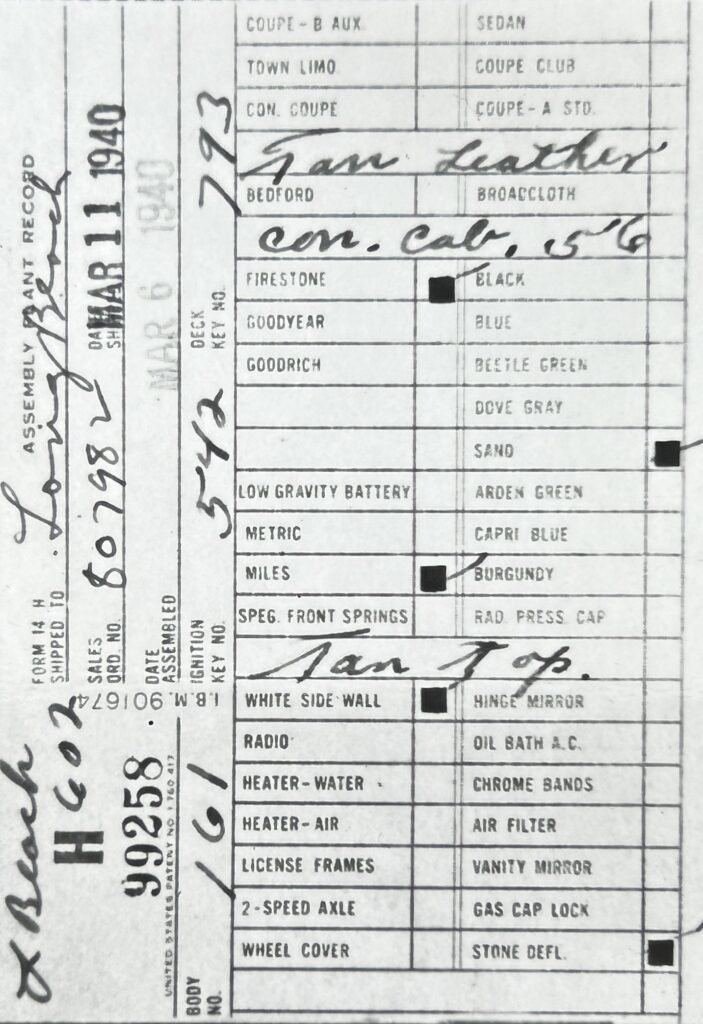 ASSEMBLY PLANT RECORD
FORM 14 H
SHIPPED TO Long Beach
SALES ORD. NO. 807982
MAR 11 1940
DATE ASSEMBLED MAR 6 1940
IGNITION KEY NO. 542
DECK KEY NO. 793
I.B.M. 901674
Beach
H 602
99258
UNITED STATES PATENT NO. 1 760 417
BODY NO. 161
COUPE-B AUX. SEDAN
TOWN LIMO. COUPE CLUB
CON. COUPE COUPE-A STD.
Tan Leather
BEDFORD BROADCLOTH
Con. Cab. 56
FIRESTONE BLACK
GOODYEAR BLUE
GOODRICH BEETLE GREEN
DOVE GRAY
SAND
LOW GRAVITY BATTERY ARDEN GREEN
METRIC CAPRI BLUE
MILES BURGUNDY
SPEG. FRONT SPRINGS RAD. PRESS. CAP
Tan Top.
WHITE SIDE WALL HINGE MIRROR
RADIO OIL BATH A.C.
HEATER-WATER CHROME BANDS
HEATER-AIR AIR FILTER
LICENSE FRAMES VANITY MIRROR
2-SPEED AXLE GAS CAP LOCK
WHEEL COVER STONE DEFL.